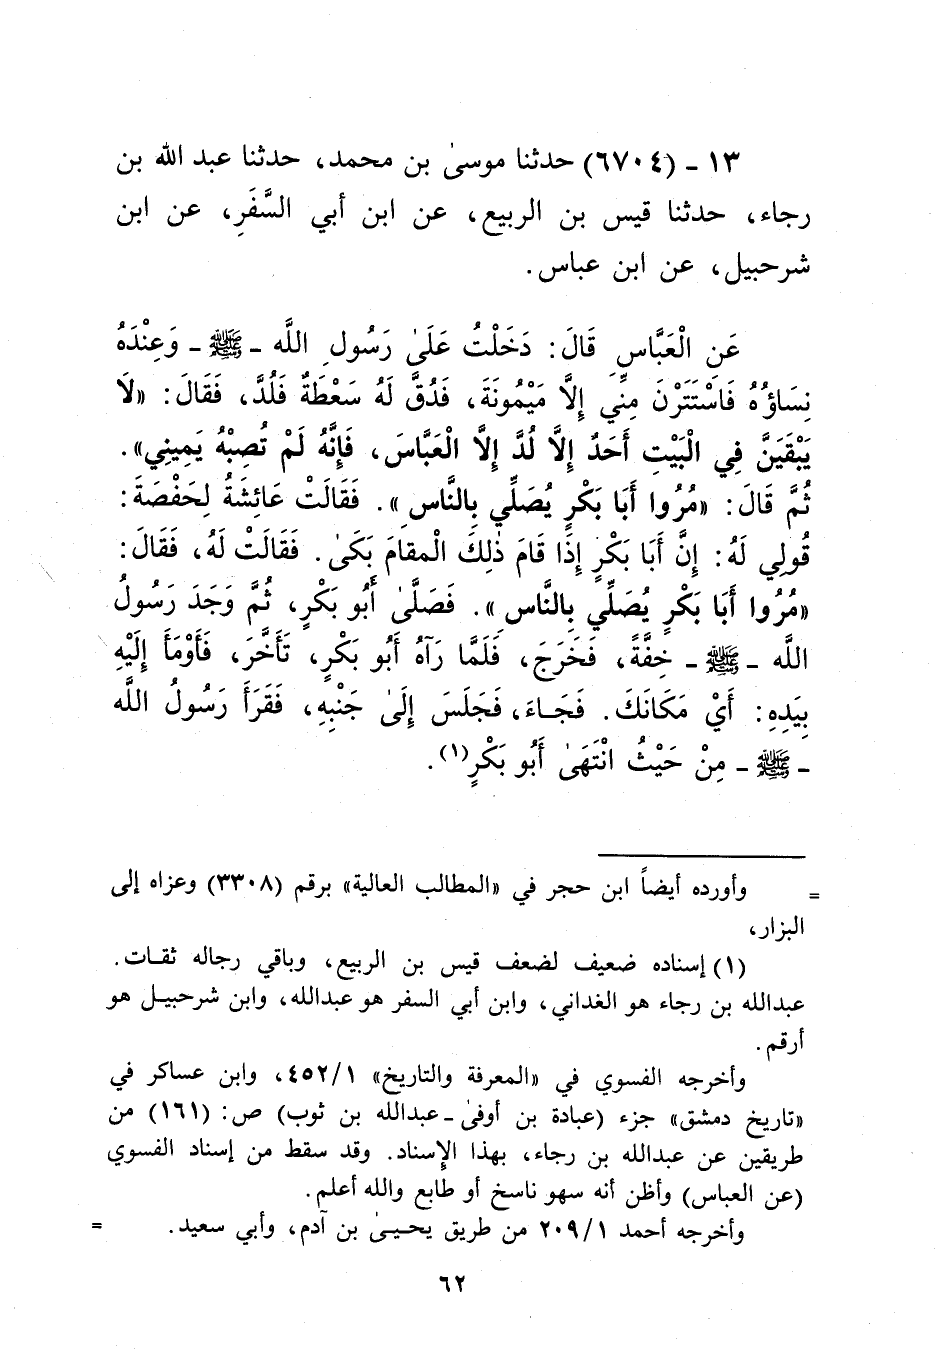 ١٣ ـ (٦٧٠٤) حدثنا موسىٰ بن محمد، حدثنا عبد الله بن
رجاء، حدثنا قيس بن الربيع، عن ابن أبي السَّفَرِ، عن ابن
شرحبيل، عن ابن عباس.
عَنِ الْعَبَّاسِ قَالَ: دَخَلْتُ عَلَىٰ رَسُولِ اللَّه ـ ﷺ ـ وَعِنْدَهُ
نِسَاؤُهُ فَاسْتَتَرْنَ مِنِّي إِلَّا مَيْمُونَةَ، فَدُقَّ لَهُ سَعْطَةٌ فَلُدَّ، فَقَالَ: «لَا
يَبْقَيَنَّ فِي الْبَيْتِ أَحَدٌ إِلَّا لُدَّ إِلَّا الْعَبَّاسَ، فَإِنَّهُ لَمْ تُصِبْهُ يَمِينِي».
ثُمَّ قَالَ: «مُرُوا أَبَا بَكْرٍ يُصَلِّي بِالنَّاسِ». فَقَالَتْ عَائِشَةُ لِحَفْصَةَ:
قُولِي لَهُ: إِنَّ أَبَا بَكْرٍ إِذَا قَامَ ذٰلِكَ الْمقَامَ بَكَىٰ. فَقَالَتْ لَهُ، فَقَالَ:
«مُرُوا أَبَا بَكْرٍ يُصَلِّي بِالنَّاسِ». فَصَلَّىٰ أَبُو بَكْرٍ، ثُمَّ وَجَدَ رَسُولُ
اللَّه ـ ﷺ ـ خِفَّةً، فَخَرَجَ، فَلَمَّا رَآهُ أَبُو بَكْرٍ، تَأَخَّرَ، فَأَوْمَأَ إِلَيْهِ
بِيَدِهِ: أَيْ مَكَانَكَ. فَجَاءَ، فَجَلَسَ إِلَىٰ جَنْبِهِ، فَقَرَأَ رَسُولُ اللَّه
ـ ﷺ ـ مِنْ حَيْثُ انْتَهَىٰ أَبُو بَكْرٍ(١).
= وأورده أيضاً ابن حجر في «المطالب العالية» برقم (٣٣٠٨) وعزاه إلى
البزار،
(١) إسناده ضعيف لضعف قيس بن الربيع، وباقي رجاله ثقات.
عبدالله بن رجاء هو الغداني، وابن أبي السفر هو عبدالله، وابن شرحبيل هو
أرقم.
وأخرجه الفسوي في «المعرفة والتاريخ» ٤٥٢/١، وابن عساكر في
«تاريخ دمشق» جزء (عبادة بن أوفىٰ ـ عبدالله بن ثوب) ص: (١٦١) من
طريقين عن عبدالله بن رجاء، بهذا الإسناد. وقد سقط من إسناد الفسوي
(عن العباس) وأظن أنه سهو ناسخ أو طابع والله أعلم.
وأخرجه أحمد ٢٠٩/١ من طريق يحيىٰ بن آدم، وأبي سعيد. =
٦٢